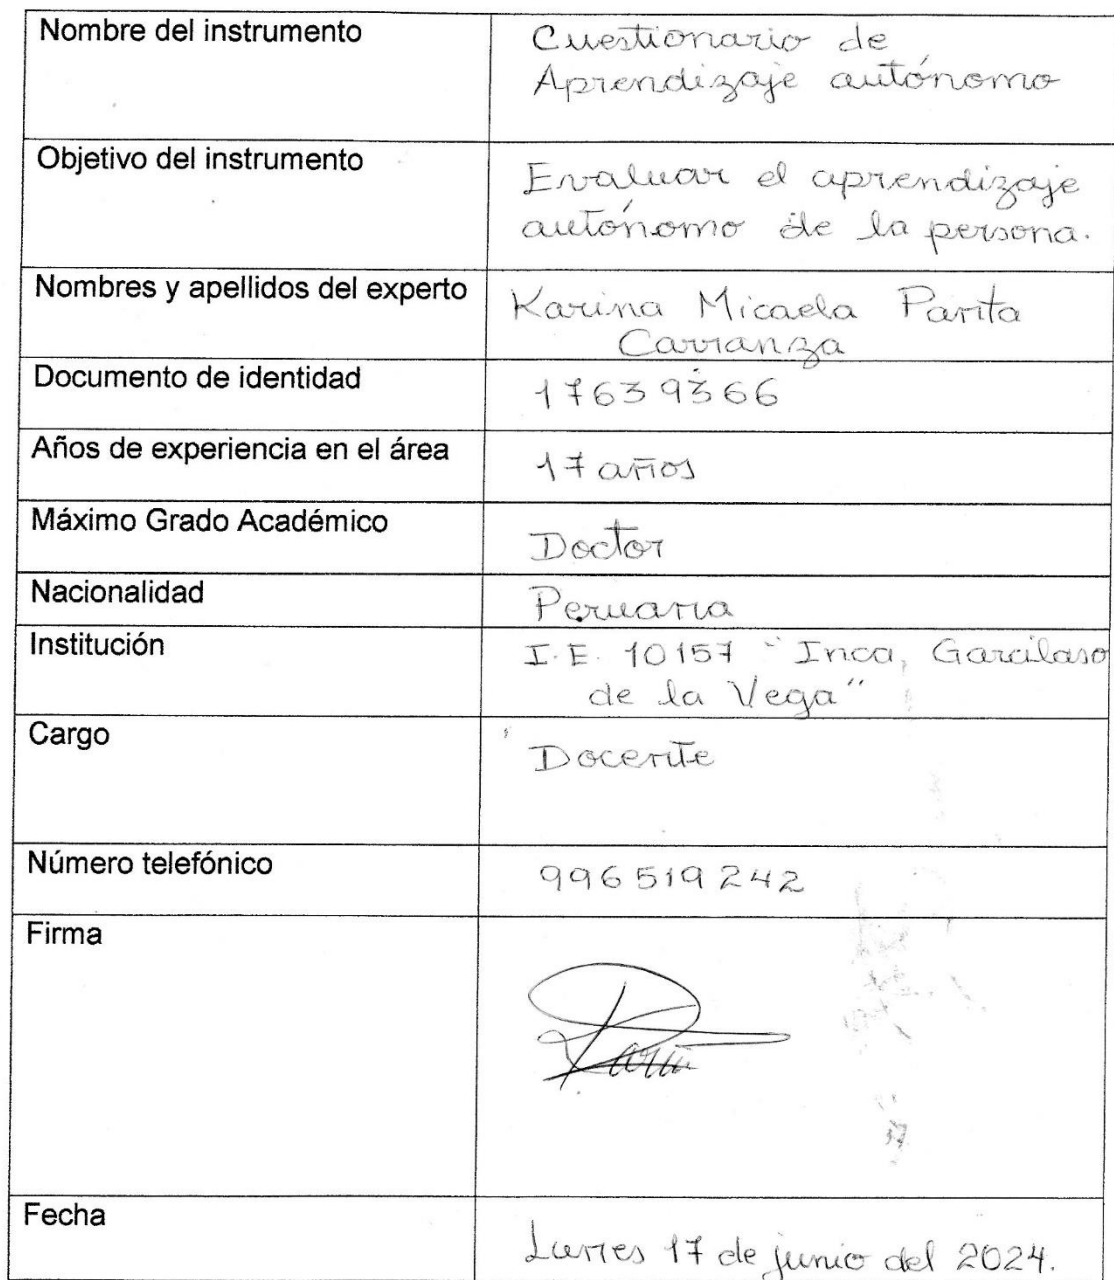 Nombre del instrumento
Cuestionario de
Aprendizaje autónomo
Objetivo del instrumento
Evaluar el aprendizaje
autónomo de la persona.
Nombres y apellidos del experto
Karina Micaela Panta
Carranza
Documento de identidad
17639366
Años de experiencia en el área
17 años
Máximo Grado Académico
Doctor
Nacionalidad
Peruana
Institución
I.E. 10157 "Inca, Garcilaso
de la Vega"
Cargo
Docente
Número telefónico
996519242
Firma
Fecha
Lunes 17 de junio del 2024.